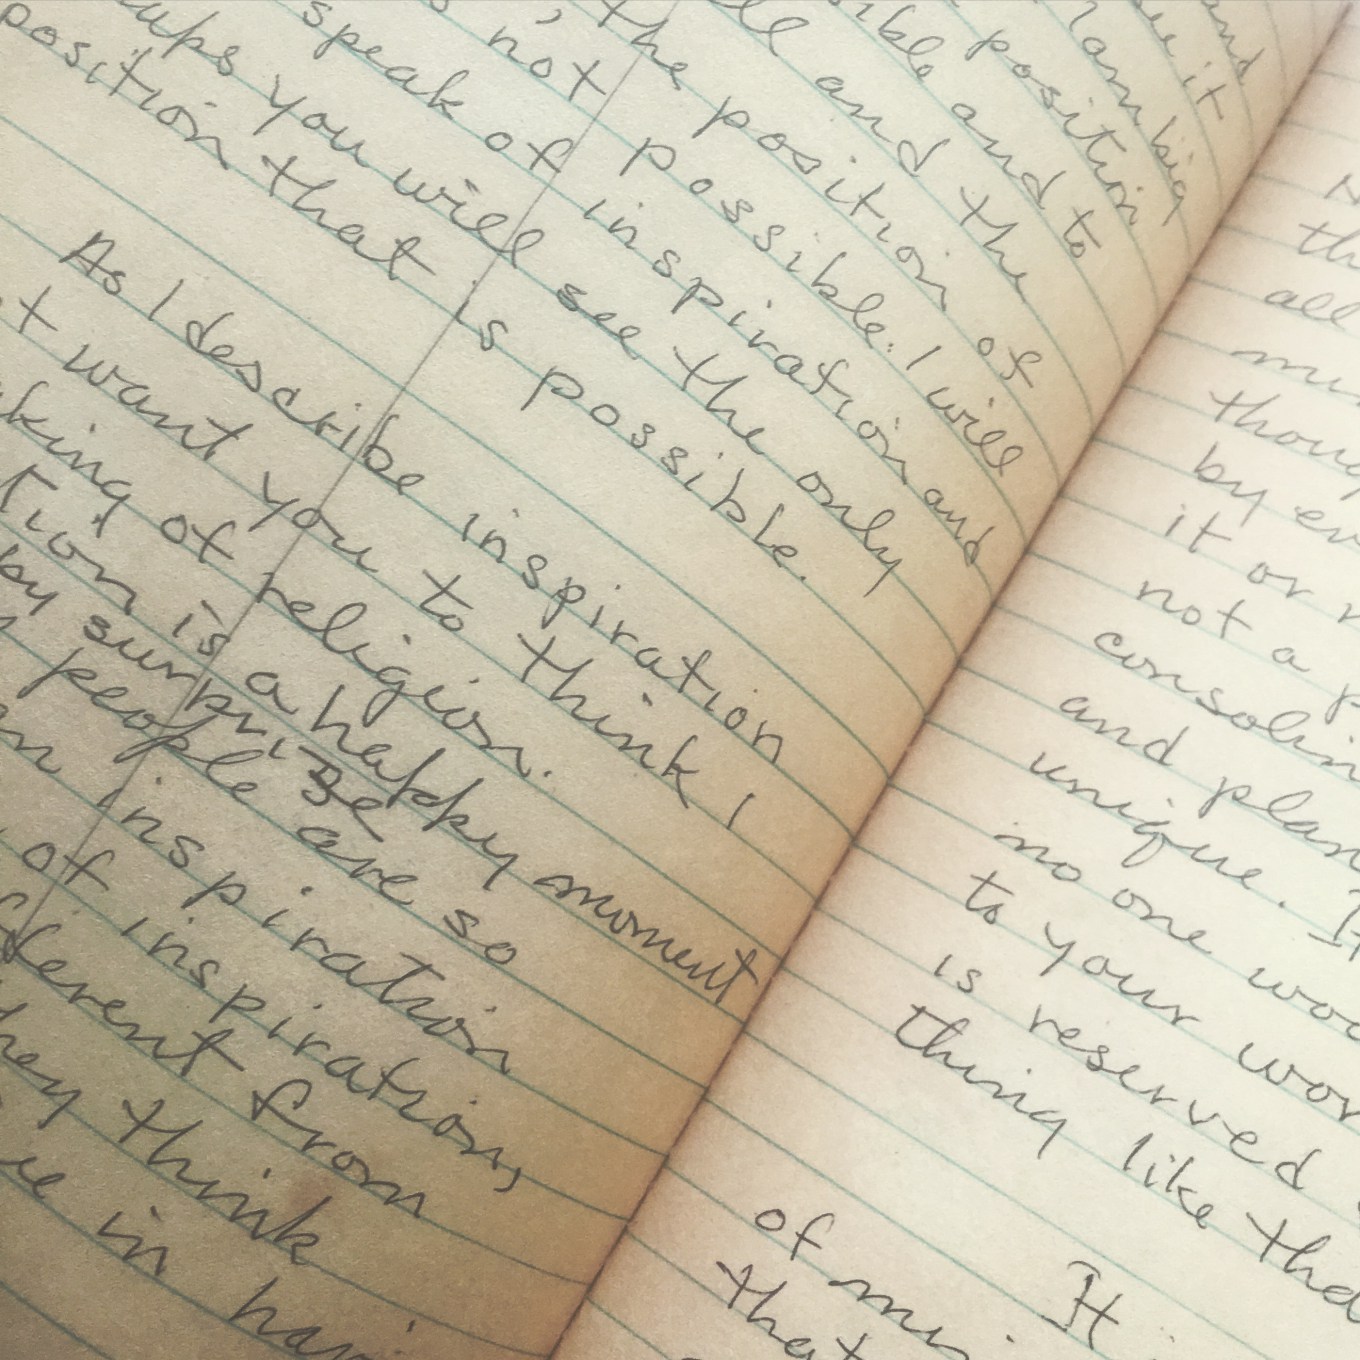 and
see it
position
ible and to
ll and the
, the position of
not possible. I will
speak of inspiration and
you will see the only
position that is possible.
As I describe inspiration
want you to think I
king of religion.
tion is a happy moment
by surprise
people are so
inspiration
of inspiration,
ferent from
hey think
in
th
all
thoug
by
it or
not a
consolin
and plan
unique. It
no one wou
to your wor
is reserved
thing like tha
It
of mi
that